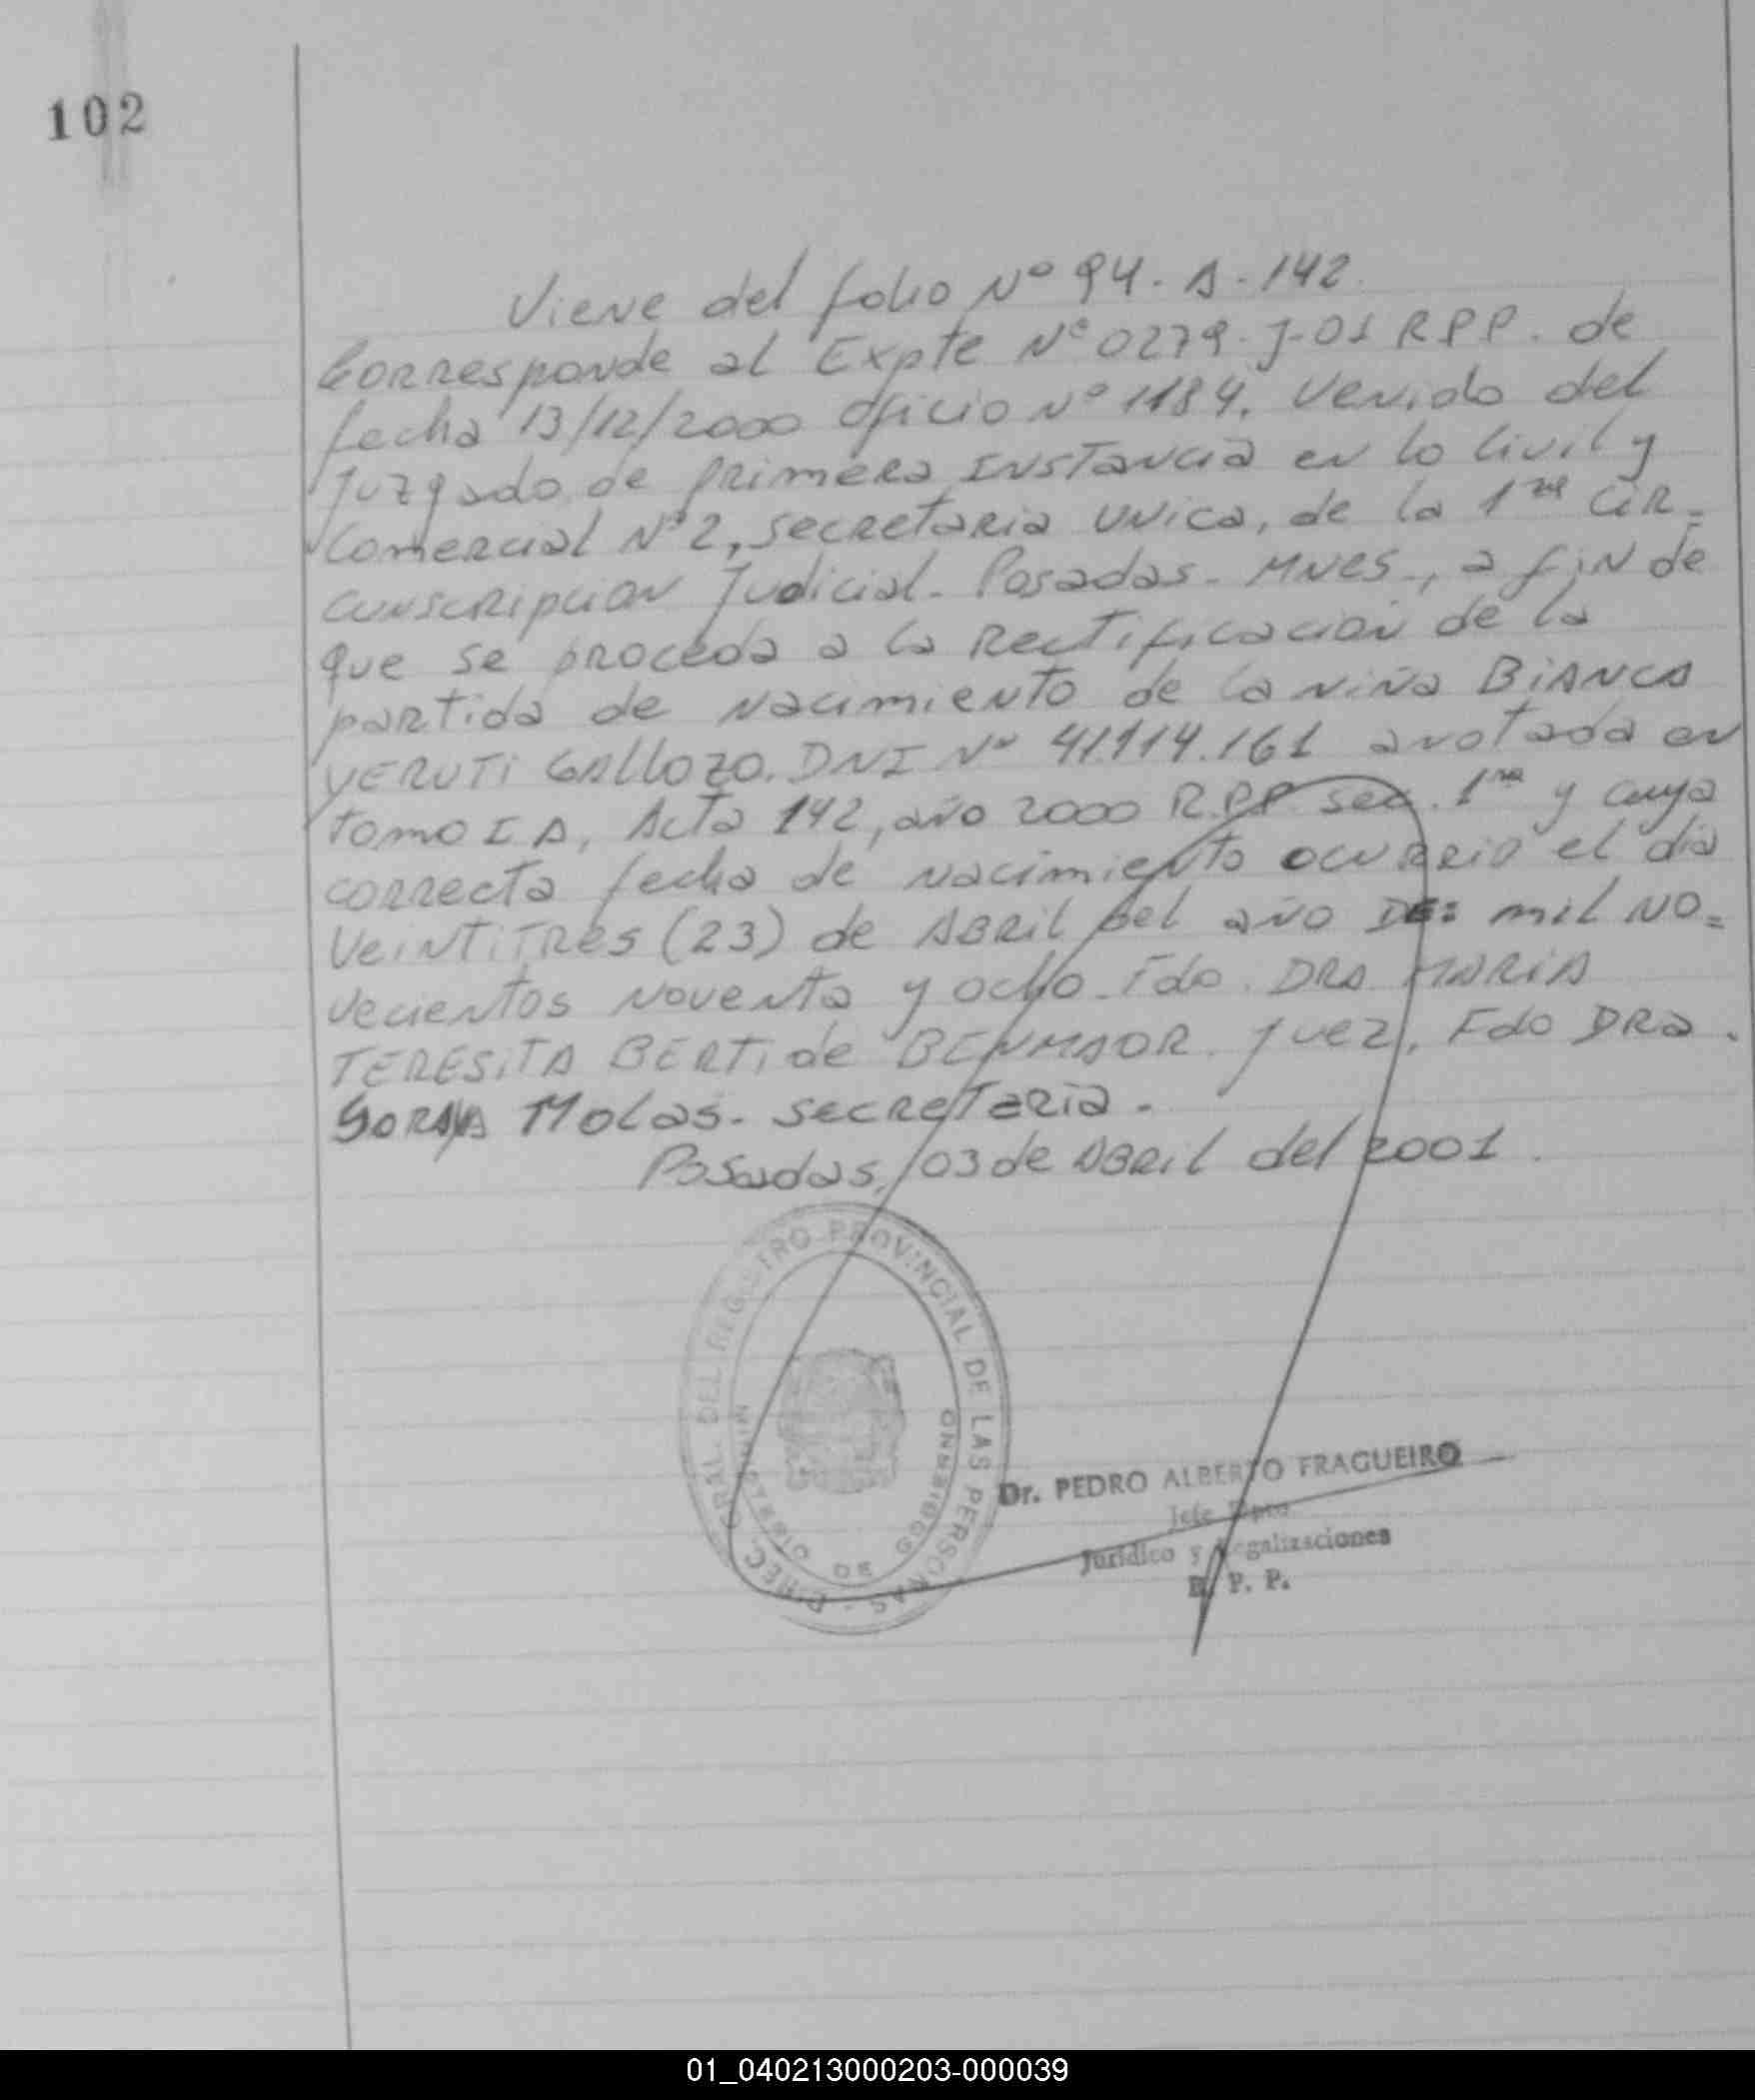 102
Viene del folio Nº 94. A. 142.
Corresponde al Expte Nº 0279. J-01 RPP. de
fecha 13/12/2000 oficio Nº 1184. Venido del
Juzgado de primera Instancia en lo Civil y
Comercial Nº 2, secretaria unica, de la 1ra Cir-
cunscripcion Judicial. Posadas. Mnes., a fin de
que se proceda a la Rectificacion de la
partida de nacimiento de la niña BiANCA
VERUTi GALLOZO. DNI Nº 41.114.161 anotada en
tomo I A, Acta 142, año 2000 R.P.P. sec. 1ra y cuya
correcta fecha de nacimiento ocurrio el dia
Veintitres (23) de Abril del año DE: mil no=
vecientos noventa y ocho. Fdo. DRA MARIA
TERESiTA BERTi de BENMAOR. Juez, Fdo DRa.
SORAYA Molas. secretaria.
Posadas, 03 de Abril del 2001.
DIREC. GRAL. DEL REGISTRO PROVINCIAL DE LAS PERSONAS -
MINISTERIO DE GOBIERNO
Dr. PEDRO ALBERTO FRAGUEIRO
Jefe Dpto
Jurídico y Legalizaciones
R. P. P.
01_040213000203-000039